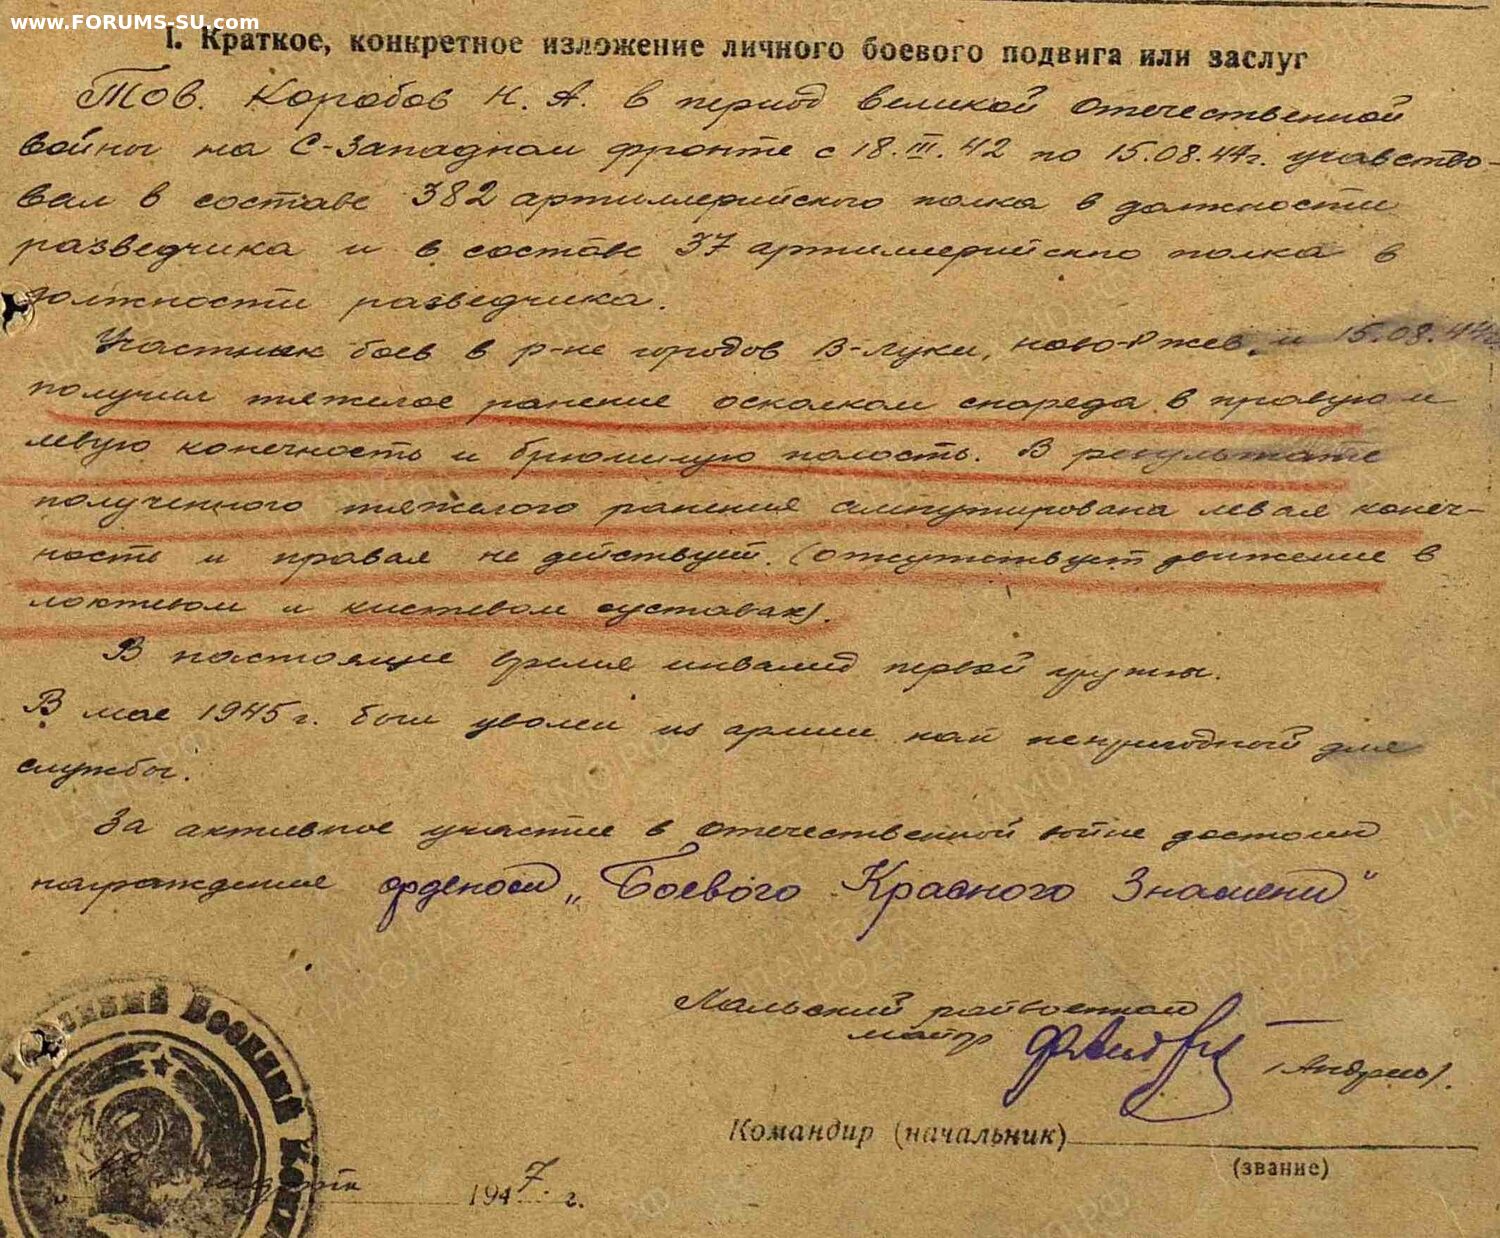 www.FORUMS-SU.com
I. Краткое, конкретное изложение личного боевого подвига или заслуг
Тов. Коробов Н. А. в период великой отечественной
войны на С-Западном фронте с 18.III.42 по 15.08.44г. учавство-
вал в составе 382 артиллерийского полка в должности
разведчика и в составе 37 артиллерийского полка в
должности разведчика.
Участник боев в р-не городов В-Луки, ново-Ржев, и 15.08.44г.
получил тяжелое ранение осколком спереда в правую и
левую конечность и брюшную полость. В результате
полученного тяжелого ранения ампутирована левая конеч-
ность и правая не действует. (отсутствует движение в
локтевом и кистевом суставах).
В настоящее время инвалид первой группы.
В мае 1945г. был уволен из армии как непригодный для
службы.
За активное участие в отечественной войне достоин
награждения орденом „Боевого Красного Знамени"
Лальский райвоенком
майор
Командир (начальник)
(звание)
марта 1947 г.